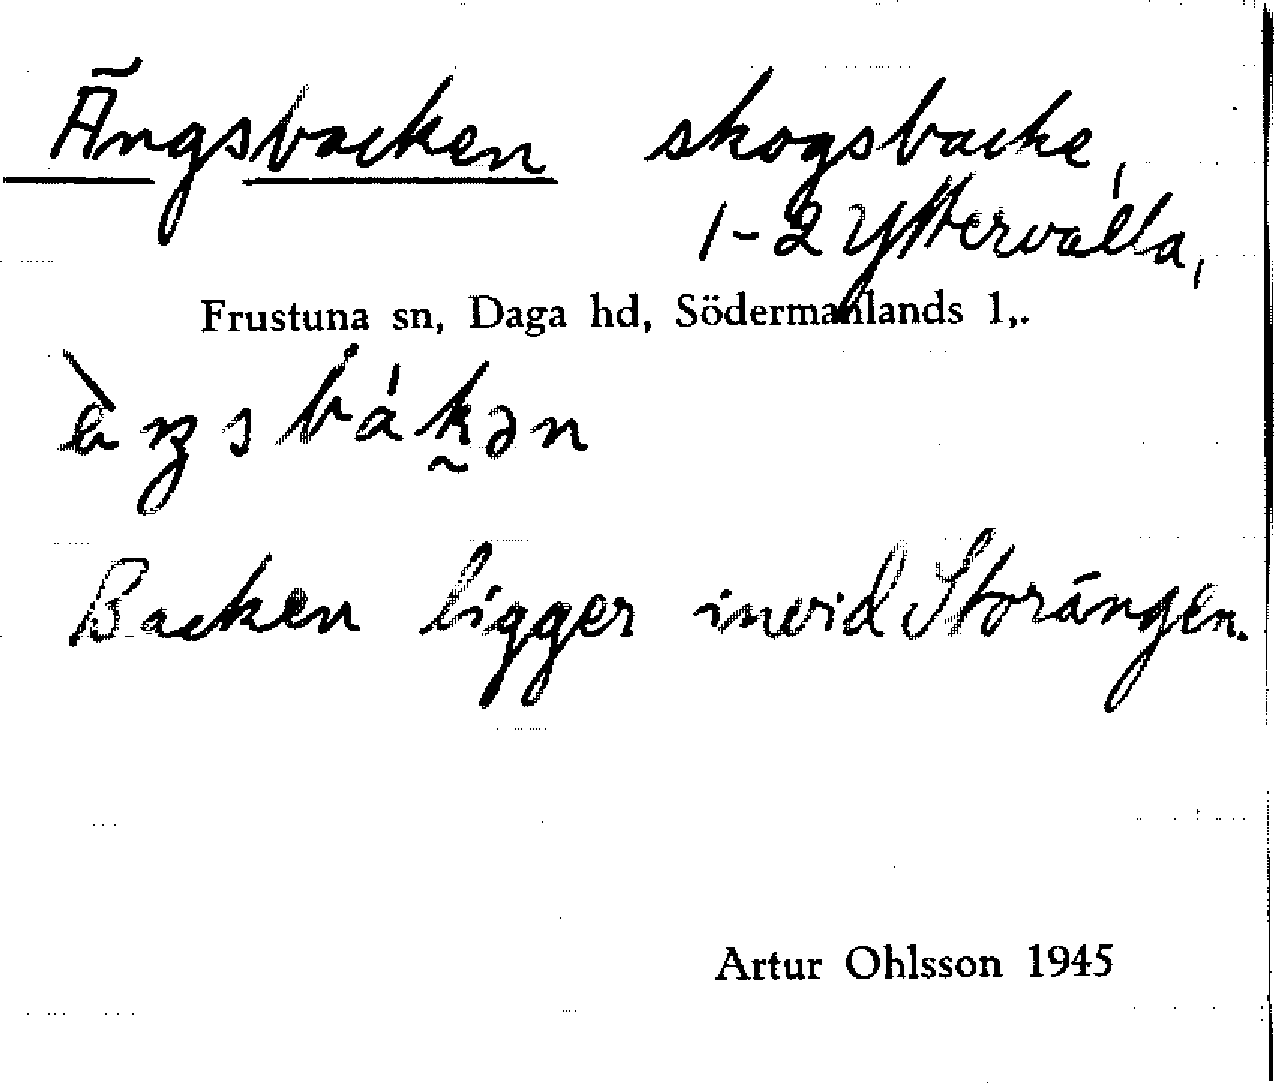 Ängsbacken skogsbacke,
1-2 Yttervälla,
Frustuna sn, Daga hd, Södermanlands l,.
Backen ligger invid Storängen.
Artur Ohlsson 1945